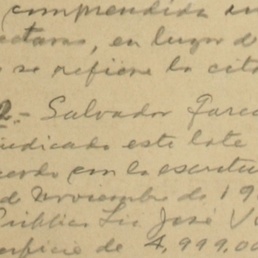 comprendida en
ectareas, en lugar d
o se refiere la cita
2.- Salvador Garc
udicado este lote
cuerdo con la escritu
de Noviembre de 19
Público Lic. José V
erficie de 4,999.00